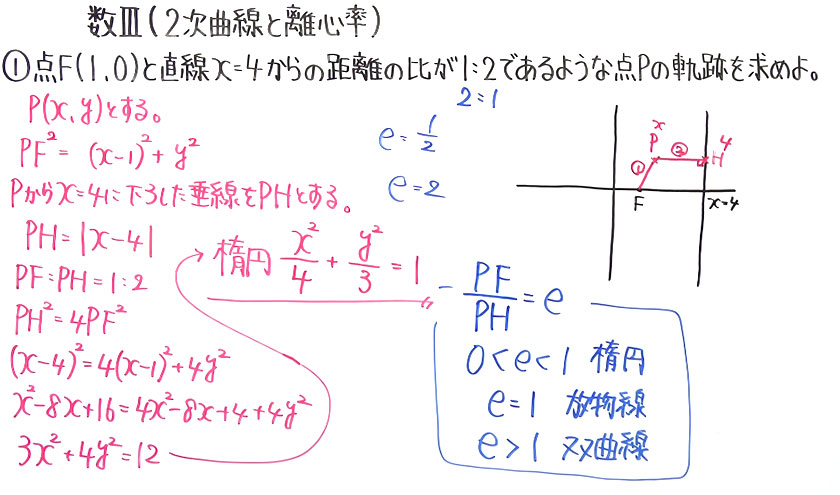 数Ⅲ(2次曲線と離心率)
①点F(1,0)と直線x=4からの距離の比が1:2であるような点Pの軌跡を求めよ。
2:1
P(x,y)とする。
PF²= (x-1)²+y²
Pからx=4に下ろした垂線をPHとする。
PH=|x-4|
PF:PH=1:2
PH²=4PF²
(x-4)²=4(x-1)²+4y²
x²-8x+16=4x²-8x+4+4y²
3x²+4y²=12
楕円 x²/4 + y²/3 = 1
e=1/2
e=2
x
P ② 4
① H
F x=4
PF/PH=e
0<e<1 楕円
e=1 放物線
e>1 双曲線